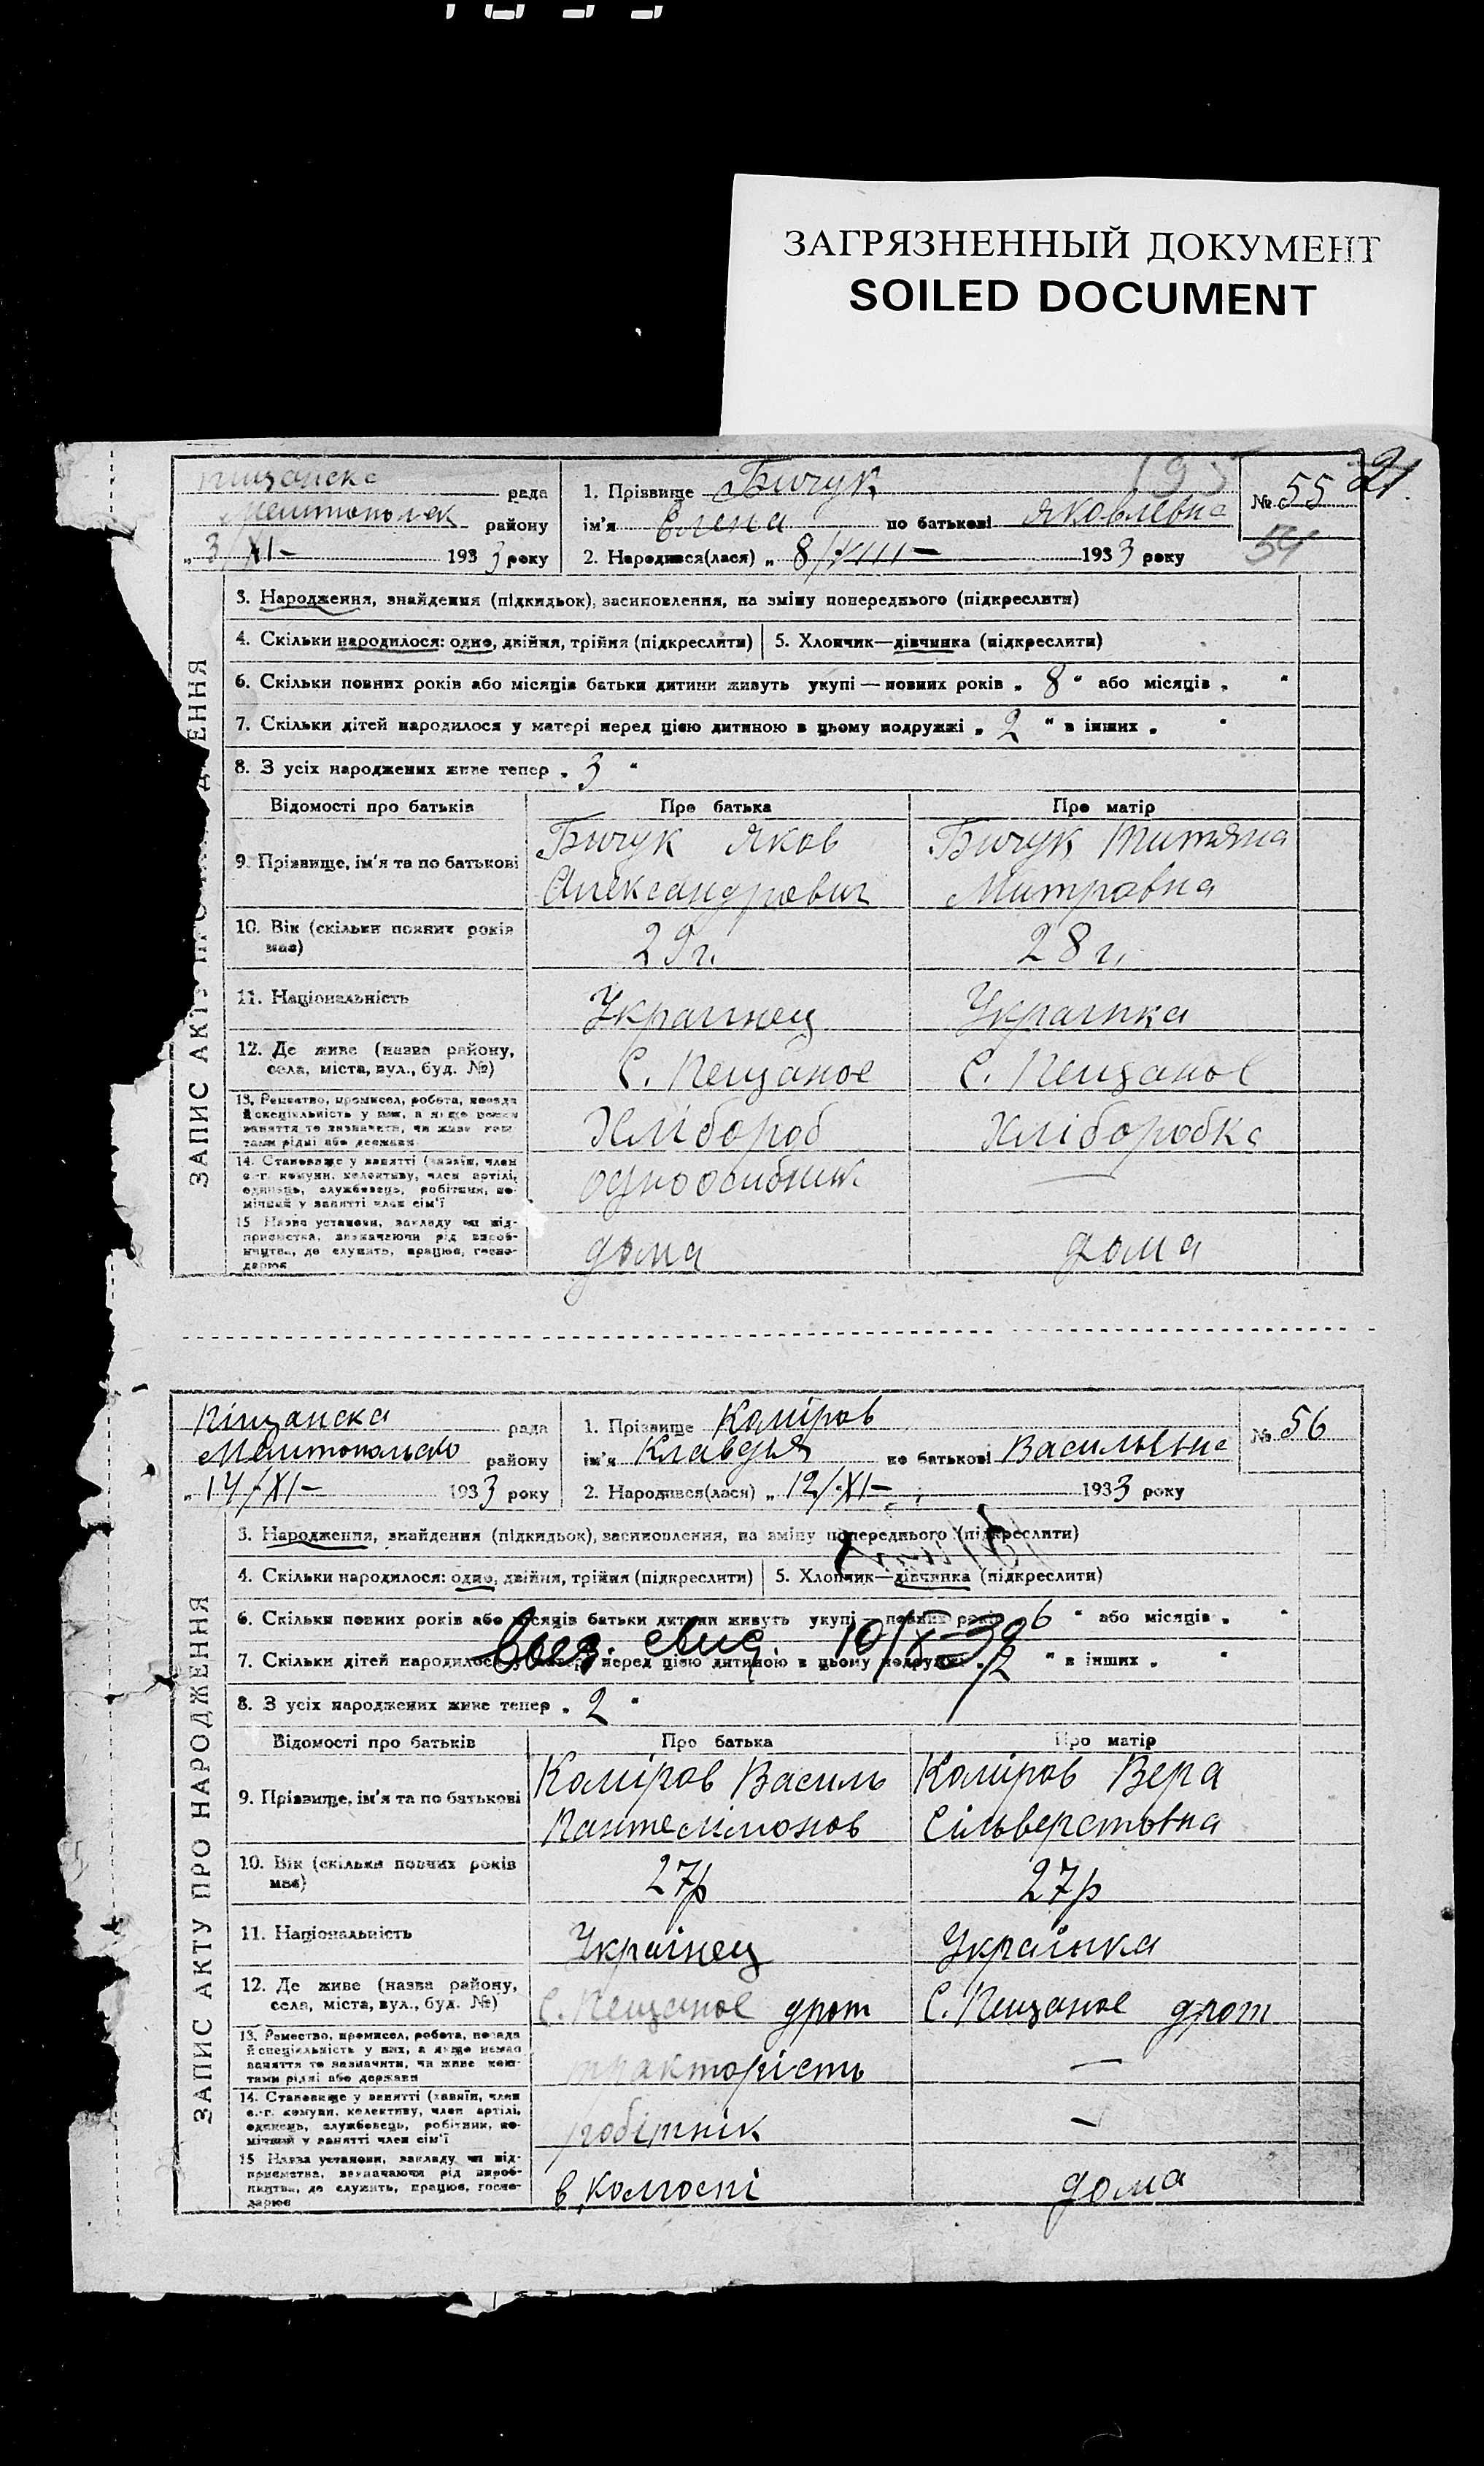 ЗАГРЯЗНЕННЫЙ ДОКУМЕНТ
SOILED DOCUMENT
21
195
рада
Мелитополск району
„ 3/XI- 1933 року
1. Прізвище Бичук
ім'я Елена по батькові Яковлевна
2. Народився(лася) „ 8/VIII- 1933 року
№ 55
54
ЗАПИС АКТУ
3. Народження, знайдення (підкидьок), засиновлення, на зміну попереднього (підкреслити)
4. Скільки народилося: одно, двійня, трійня (підкреслити) 5. Хлопчик—дівчинка (підкреслити)
6. Скільки повних років або місяців батьки дитини живуть укупі—повних років „ 8 “ або місяців „ “
7. Скільки дітей народилося у матері перед цією дитиною в цьому подружжі „ 2 “ в інших „ “
8. З усіх народжених живе тепер „ 3 “
Відомості про батьків Про батька Про матір
9. Прізвище, ім'я та по батькові
Бичук Яков
Александрович
Бичук Титяна
Митровна
10. Вік (скільки повних років
має)
29г.
28г.
11. Національність
Украинец
Украинка
12. Де живе (назва району,
села, міста, вул., буд. №)
С. Пещаное
С. Пещаное
13. Ремество, промисел, робота, посада
й спеціяльність у них, а якщо немає
заняття то зазначити, чи живе кош-
тами рідні або держави
Хлібороб
Хлібороб­ка
14. Становище у занятті (хазяїн, член
с.-г. комуни, колективу, член артілі,
одинець, службовець, робітник, по-
мічний у занятті член сім'ї
одноосибник
—
15 Назва установи, закладу чи під-
приємства, зазначаючи рід вироб-
ництва, де служить, працює, госпо-
дарює
дома
дома
Піщанска рада
району
„ 14/XI- 1933 року
1. Прізвище Каміров
ім'я Клавдья по батькові Васильевна
2. Народився(лася) „ 12/XI- 1933 року
№ 56
ЗАПИС АКТУ ПРО НАРОДЖЕННЯ
3. Народження, знайдення (підкидьок), засиновлення, на зміну попереднього (підкреслити)
4. Скільки народилося: одно, двійня, трійня (підкреслити) 5. Хлопчик—дівчинка (підкреслити)
6. Скільки повних років або місяців батьки дитини живуть укупі—повних років 6 “ або місяців „ “
7. Скільки дітей народилося у матері перед цією дитиною в цьому подружжі „ 2 “ в інших „ “
8. З усіх народжених живе тепер „ 2 “
Відомості про батьків Про батька Про матір
9. Прізвище, ім'я та по батькові
Каміров Василь
Пантелімонов
Каміров Вера
Сільверстовна
10. Вік (скільки повних років
має)
27р
27р
11. Національність
Українец
Українка
12. Де живе (назва району,
села, міста, вул., буд. №)
С. Пещаное
С. Пещаное
13. Ремество, промисел, робота, посада
й спеціяльність у них, а якщо немає
заняття то зазначити, чи живе кош-
тами рідні або держави
тракторість
—
14. Становище у занятті (хазяїн, член
с.-г. комуни, колективу, член артілі,
одинець, службовець, робітник, по-
мічний у занятті член сім'ї
робітнік
—
15 Назва установи, закладу чи під-
приємства, зазначаючи рід вироб-
ництва, де служить, працює, госпо-
дарює
в колгоспі
дома